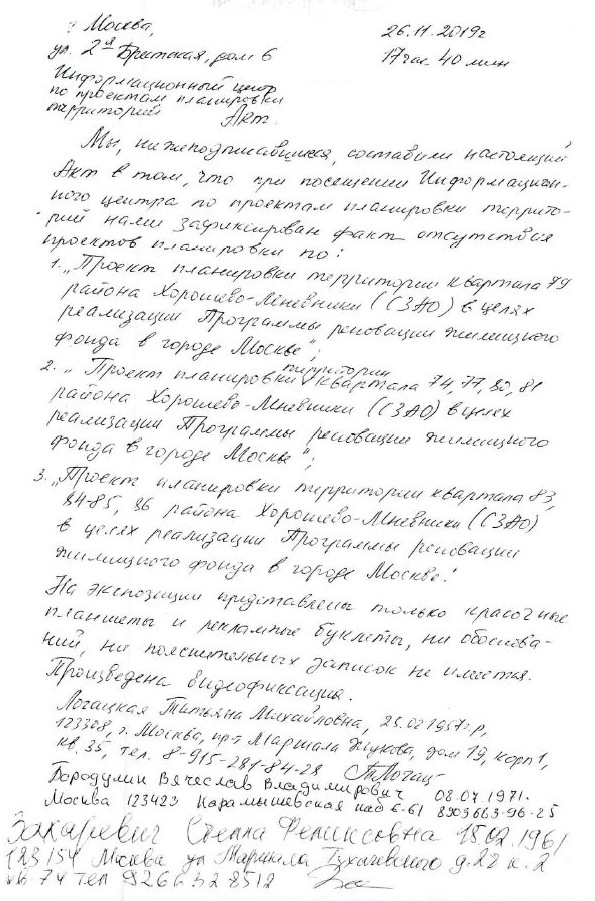 г. Москва, 26.11.2019г
ул. 2я Брестская, дом 6 17час 40 мин
Информационный центр
по проектам планировки
территорий Акт.
Мы, нижеподписавшиеся, составили настоящий
Акт в том, что при посещении Информацион-
ного центра по проектам планировки террито-
рий нами зафиксирован факт отсутствия
проектов планировки по:
1. „Проект планировки территории квартала 79
района Хорошево-Мневники (СЗАО) в целях
реализации Программы реновации жилищного
фонда в городе Москве";
территории
2. „Проект планировки квартала 74, 77, 80, 81
района Хорошево-Мневники (СЗАО) в целях
реализации Программы реновации жилищного
фонда в городе Москве";
3. „Проект планировки территории квартала 83,
84-85, 86 района Хорошево-Мневники (СЗАО)
в целях реализации Программы реновации
жилищного фонда в городе Москве.
На экспозиции представлены только красочные
планшеты и рекламные буклеты, ни обоснова-
ний, ни пояснительных записок не имеется.
Произведена видеофиксация.
Логацкая Татьяна Михайловна, 25.02.1957г.р,
123308, г. Москва, пр-т Маршала Жукова, дом 19, корп 1,
кв. 35, тел. 8-915-281-84-28 Логац
Бородулин Вячеслав Владимирович 08.07.1971.
Москва 123423 Карамышевская наб 6-61 8903663-96-25
Захаревич Стелла Феликсовна 15.02.1961
123154 Москва ул Маршала Тухачевского д.22 к.2
кв 74 тел 926632 8512